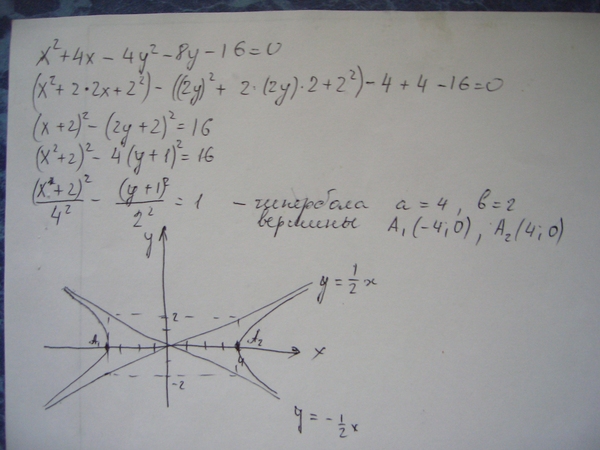 x² + 4x - 4y² - 8y - 16 = 0
(x² + 2·2x + 2²) - ((2y)² + 2·(2y)·2 + 2²) - 4 + 4 - 16 = 0
(x + 2)² - (2y + 2)² = 16
(x² + 2)² - 4(y + 1)² = 16
(x² + 2)²/4² - (y + 1)²/2² = 1 - гипербола a = 4, b = 2
вершины A₁(-4; 0), A₂(4; 0)
y
y = 1/2 x
2
A₁
A₂
4
x
-2
y = -1/2 x